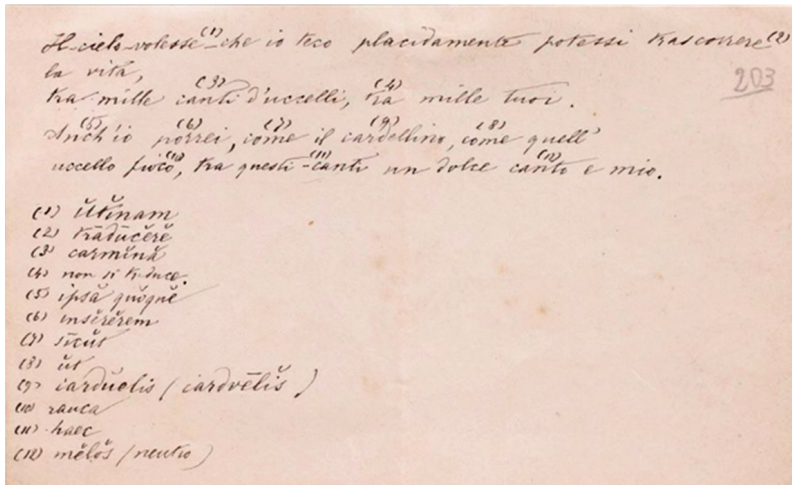 Il cielo volesse (1) che io teco placidamente potessi trascorrere (2)
203
la vita,
tra mille canti (3) d'uccelli, tra (4) mille tuoi.
Anch'io (5) porrei (6), come (7) il cardellino (9), come (8) quell'
uccello fioco (10), tra questi (11) canti un dolce canto (12) e mio.
(1) ŭtĭnam
(2) trādūcĕrĕ
(3) carmĭnă
(4) non si traduce.
(5) ipsă quŏquĕ
(6) insĕrĕrem
(7) sīcŭt
(8) ŭt
(9) carduelis (cardvēlĭs)
(10) rauca
(11) haec
(12) mĕlŏs (neutro)